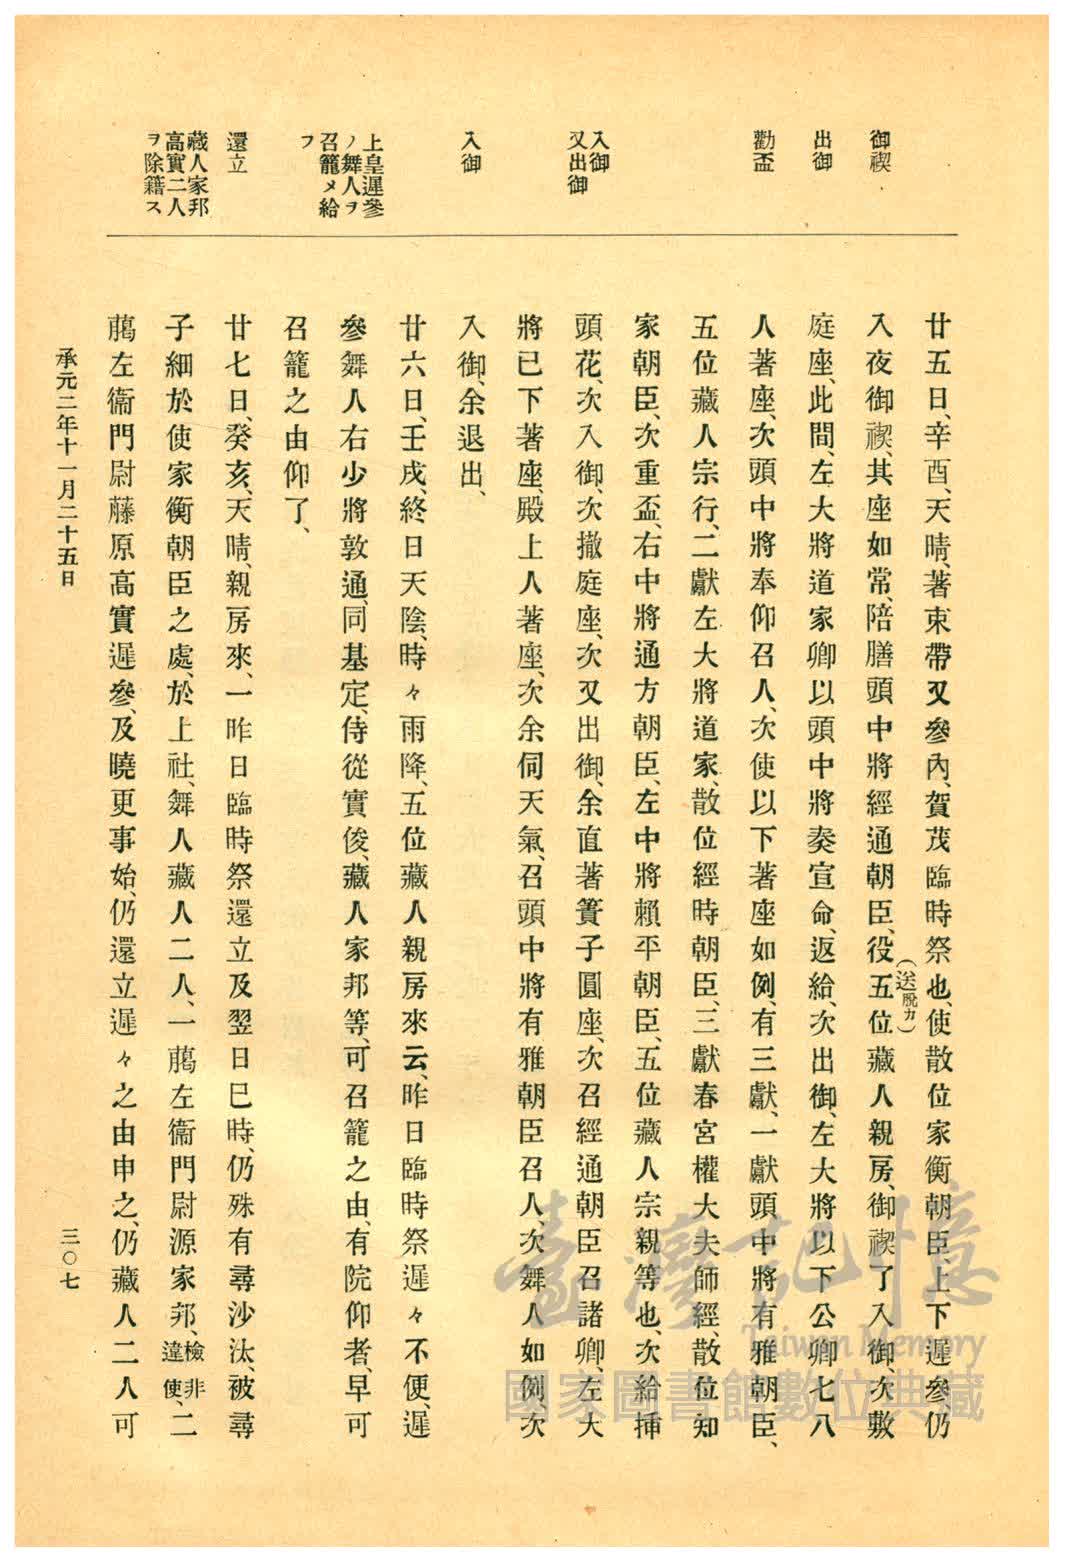 御禊
出御
勸盃
入御
又出御
入御
上皇遲參
ノ舞人ヲ
召籠メ給
フ
還立
藏人家邦
高實二人
ヲ除籍ス
廿五日、辛酉、天晴、著束帶又參內、賀茂臨時祭也、使散位家衡朝臣、上下遲參仍
入夜御禊、其座如常、陪膳頭中將經通朝臣、役五位藏人親房、御禊了入御、次敷
(送脱カ)
庭座、此間、左大將道家卿以頭中將奏宣命、返給、次出御、左大將以下公卿七八
人著座、次頭中將奉仰召人、次使以下著座如例、有三獻、一獻頭中將有雅朝臣、
五位藏人宗行、二獻左大將道家、散位經時朝臣、三獻春宮權大夫師經、散位知
家朝臣、次重盃、右中將通方朝臣、左中將賴平朝臣、五位藏人宗親等也、次給挿
頭花、次入御、次撤庭座、次又出御、余直著簀子圓座、次召經通朝臣召諸卿、左大
將已下著座、殿上人著座、次余伺天氣、召頭中將有雅朝臣召人、次舞人如例、次
入御、余退出、
廿六日、壬戌、終日天陰、時々雨降、五位藏人親房來云、昨日臨時祭遲々不便、遲
參舞人右少將敦通、同基定、侍從實俊、藏人家邦等、可召籠之由、有院仰者、早可
召籠之由仰了、
廿七日、癸亥、天晴、親房來、一昨日臨時祭還立及翌日巳時、仍殊有尋沙汰、被尋
子細於使家衡朝臣之處、於上社、舞人藏人二人、一﨟左衞門尉源家邦、檢非違使、二
﨟左衞門尉藤原高實遲參、及曉更事始、仍還立遲々之由申之、仍藏人二人可
承元二年十一月二十五日
三〇七
臺灣記憶
Taiwan Memory
國家圖書館數位典藏